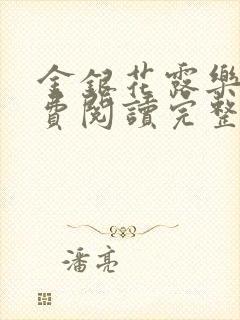 金銀花露樂
費閱讀完整
潘亮